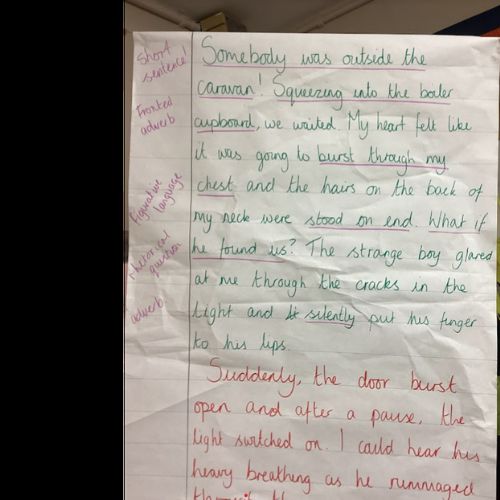 Short
sentence!
Fronted
adverb
Figurative
language
rhetorical
question
adverb
Somebody was outside the
caravan! Squeezing into the boiler
cupboard, we waited. My heart felt like
it was going to burst through my
chest and the hairs on the back of
my neck were stood on end. What if
he found us? The strange boy glared
at me through the cracks in the
light and silently put his finger
to his lips.
Suddenly, the door burst
open and after a pause, the
light switched on. I could hear his
heavy breathing as he rummaged